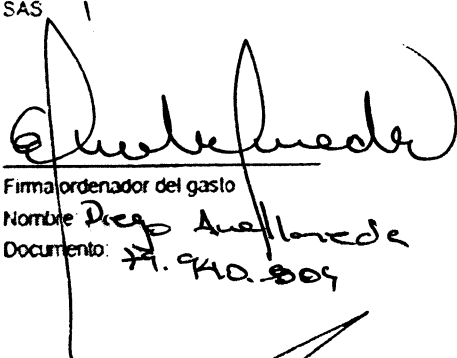 SAS
Firma ordenador del gasto
Nombre Diego Avellaneda
Documento: 79.940.804